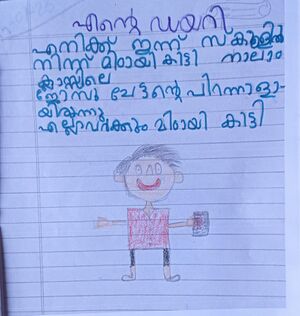 എന്റെ ഡയറി
എനിക്ക് ഇന്ന് സ്കൂളിൽ
നിന്ന് മിഠായി കിട്ടി നാലാം
ക്ലാസ്സിലെ
ജോസു ചേട്ടന്റെ പിറന്നാളാ-
യിരുന്നു
എല്ലാവർക്കും മിഠായി കിട്ടി